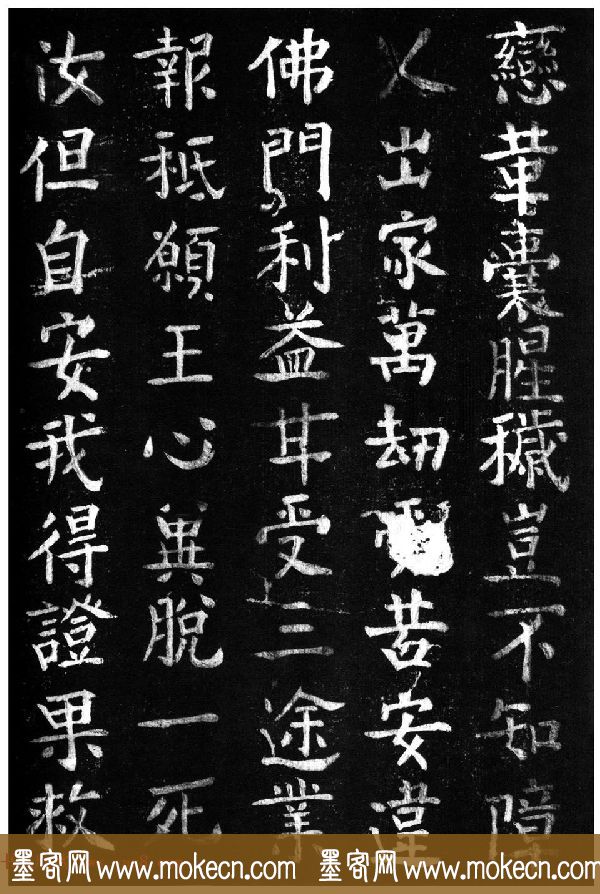 戀革囊腥穢豈不知障
人出家萬劫受苦安違
佛門利益甘受三途業
報秖願王心兾脫一死
汝但自安我得證果救
墨客网 www.mokecn.com 墨客网 www.mokecn.com